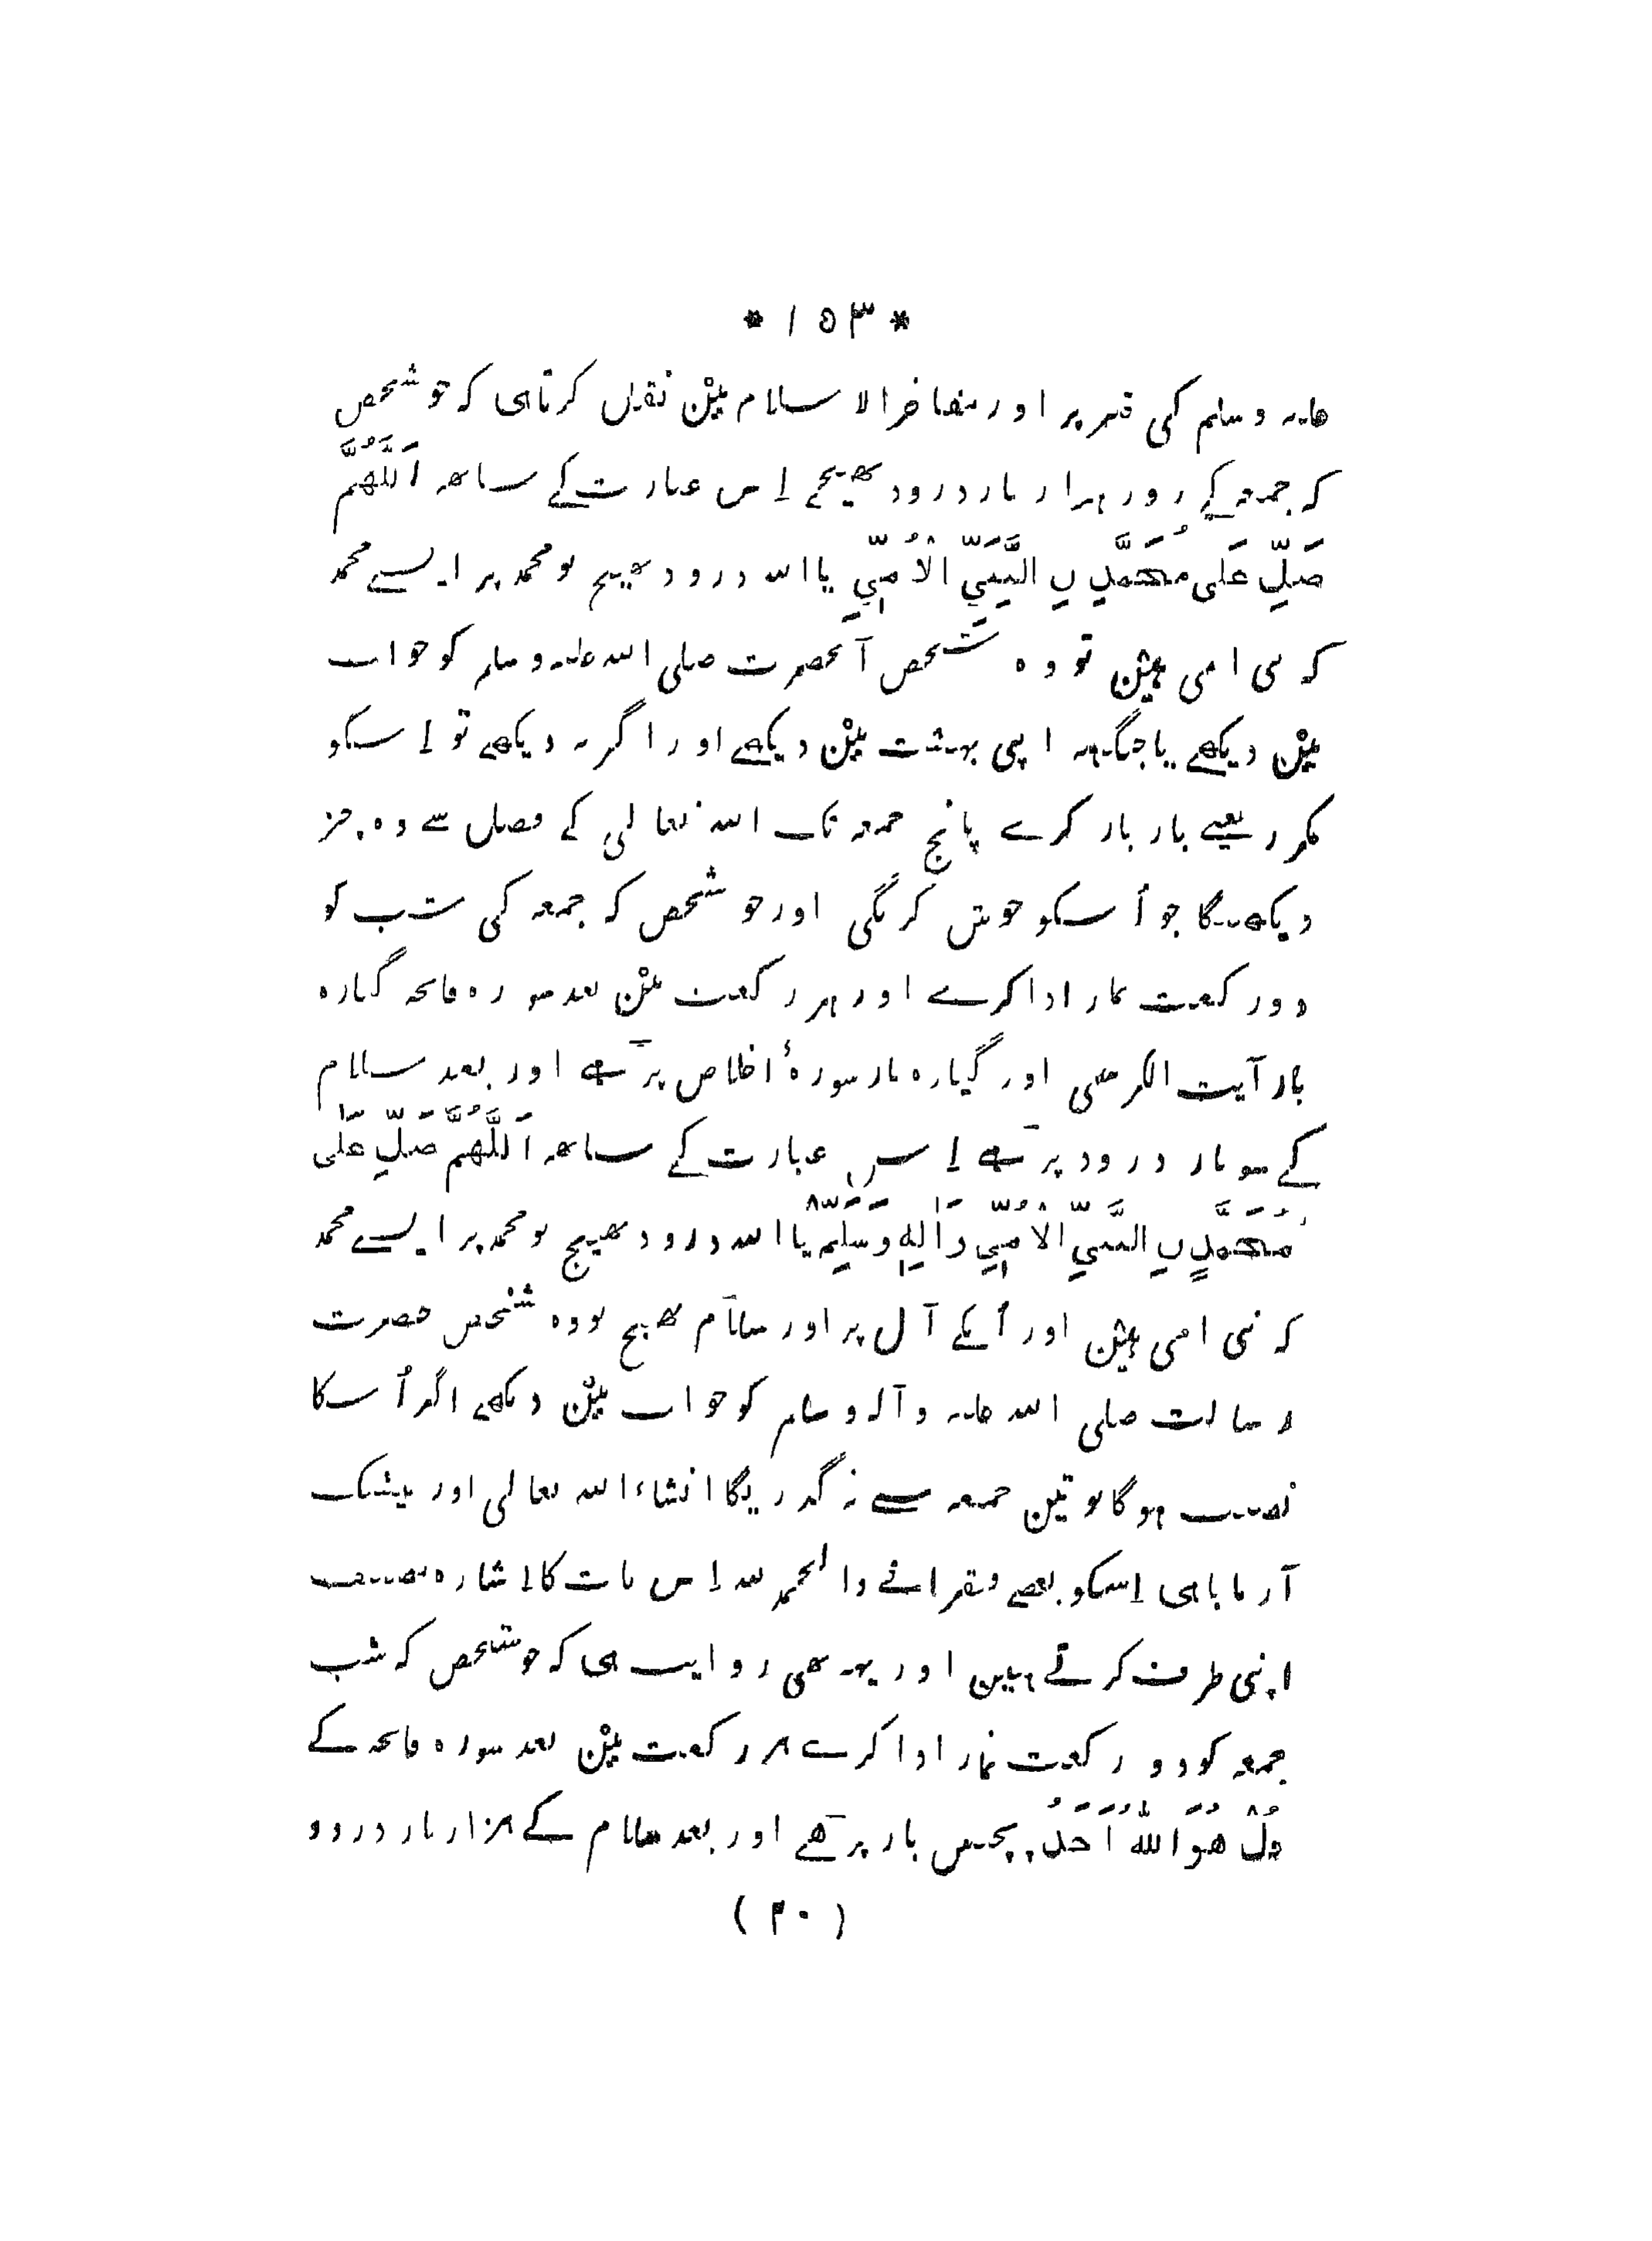 * ۱۵۳ *
علیہ وسلم کی قبر پر اور مفاخر الاسلام میں نقل کرتا ہی کہ جو شخص
کہ جمعہ کے روز ہزار بار درود بھیجے اِس عبارت کے ساتھہ اَللّٰھُمَّ
صَلِّ عَلٰی مُحَمَّدٍ نِ النَّبِيِّ الْاُمِّيِّ یا اللہ درود بھیج تو محمد پر ایسے محمد
کہ نبی امی ہیں تو وہ شخص آنحضرت صلی اللہ علیہ وسلم کو خواب
میں دیکھے یا جگہہ اپنی بہشت میں دیکھے اور اگر نہ دیکھے تو اِسکو
مکرر یعنے بار بار کرے پانچ جمعہ تک اللہ تعالی کے فضل سے وہ چیز
دیکھیگا جو اُسکو خوش کریگی اور جو شخص کہ جمعہ کی شب کو
دو رکعت نماز ادا کرے اور ہر رکعت میں بعد سورہ فاتحہ گیارہ
بار آیت الکرسی اور گیارہ بار سورۂ اخلاص پڑھے اور بعد سلام
کے سو بار درود پڑھے اِس عبارت کے ساتھہ اَللّٰھُمَّ صَلِّ عَلٰی
مُحَمَّدٍ نِ النَّبِيِّ الْاُمِّيِّ وَاٰلِهٖ وَسَلِّمْ یا اللہ درود بھیج تو محمد پر ایسے محمد
کہ نبی امی ہیں اور اُنکے آل پر اور سلام بھیج تو وہ شخص حضرت
رسالت صلی اللہ علیہ وآلہ وسلم کو خواب میں دیکھے اگر اُسکا
نصیب ہوگا تو تین جمعہ سے نہ گذریگا انشاء اللہ تعالی اور بیشک
آزمایا ہی اِسکو بعضے فقرا نے والحمد للہ اِس بات کا اِشارہ مصنف
اپنی طرف کرتے ہیں اور یہہ بھی روایت ہی کہ جو شخص کہ شب
جمعہ کو دو رکعت نماز ادا کرے ہر رکعت میں بعد سورہ فاتحہ کے
قُلْ ھُوَ اللّٰہُ اَحَدٌ پچیس بار پڑھے اور بعد سلام کے ہزار بار درود
(۲۰)